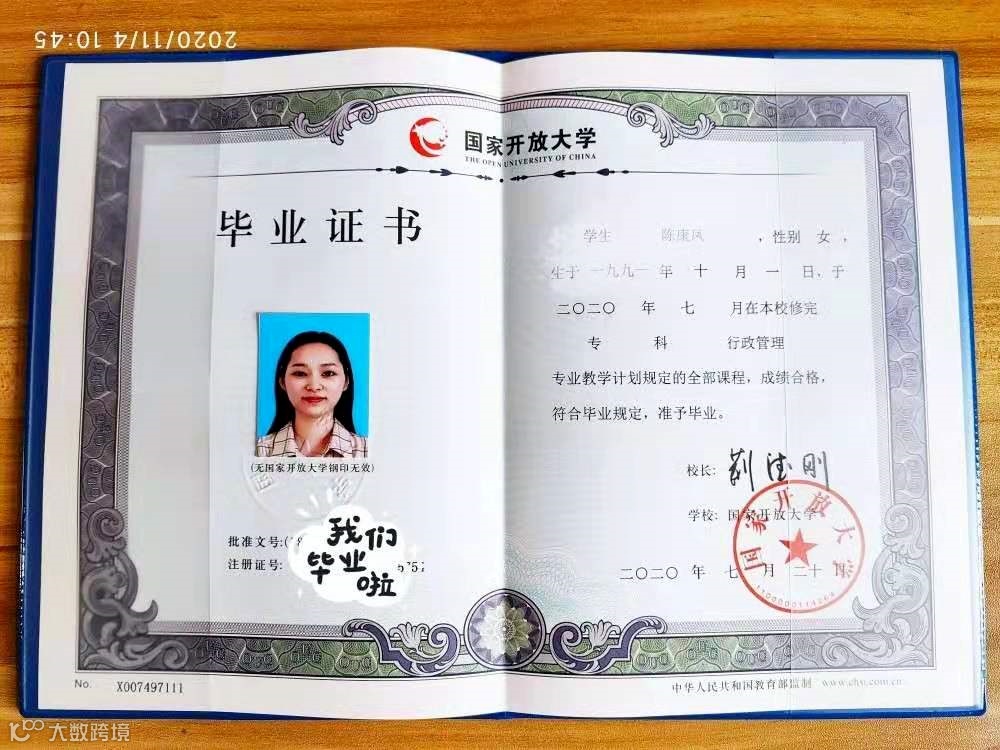 2020/11/4 10:45
国家开放大学
THE OPEN UNIVERSITY OF CHINA
毕业证书
(无国家开放大学钢印无效)
批准文号:(
注册证号:
我们
毕业
啦
No. X007497111
学生 陈康凤 ，性别 女 ，
生于 一九九一 年 十 月 一 日、于
二〇二〇 年 七 月在本校修完
专 科 行政管理
专业教学计划规定的全部课程，成绩合格，
符合毕业规定，准予毕业。
校长:
学校: 国家开放大学
二〇二〇 年 七 月 二十
国家开放大学
中华人民共和国教育部监制 www.chsi.com.cn
大数跨境